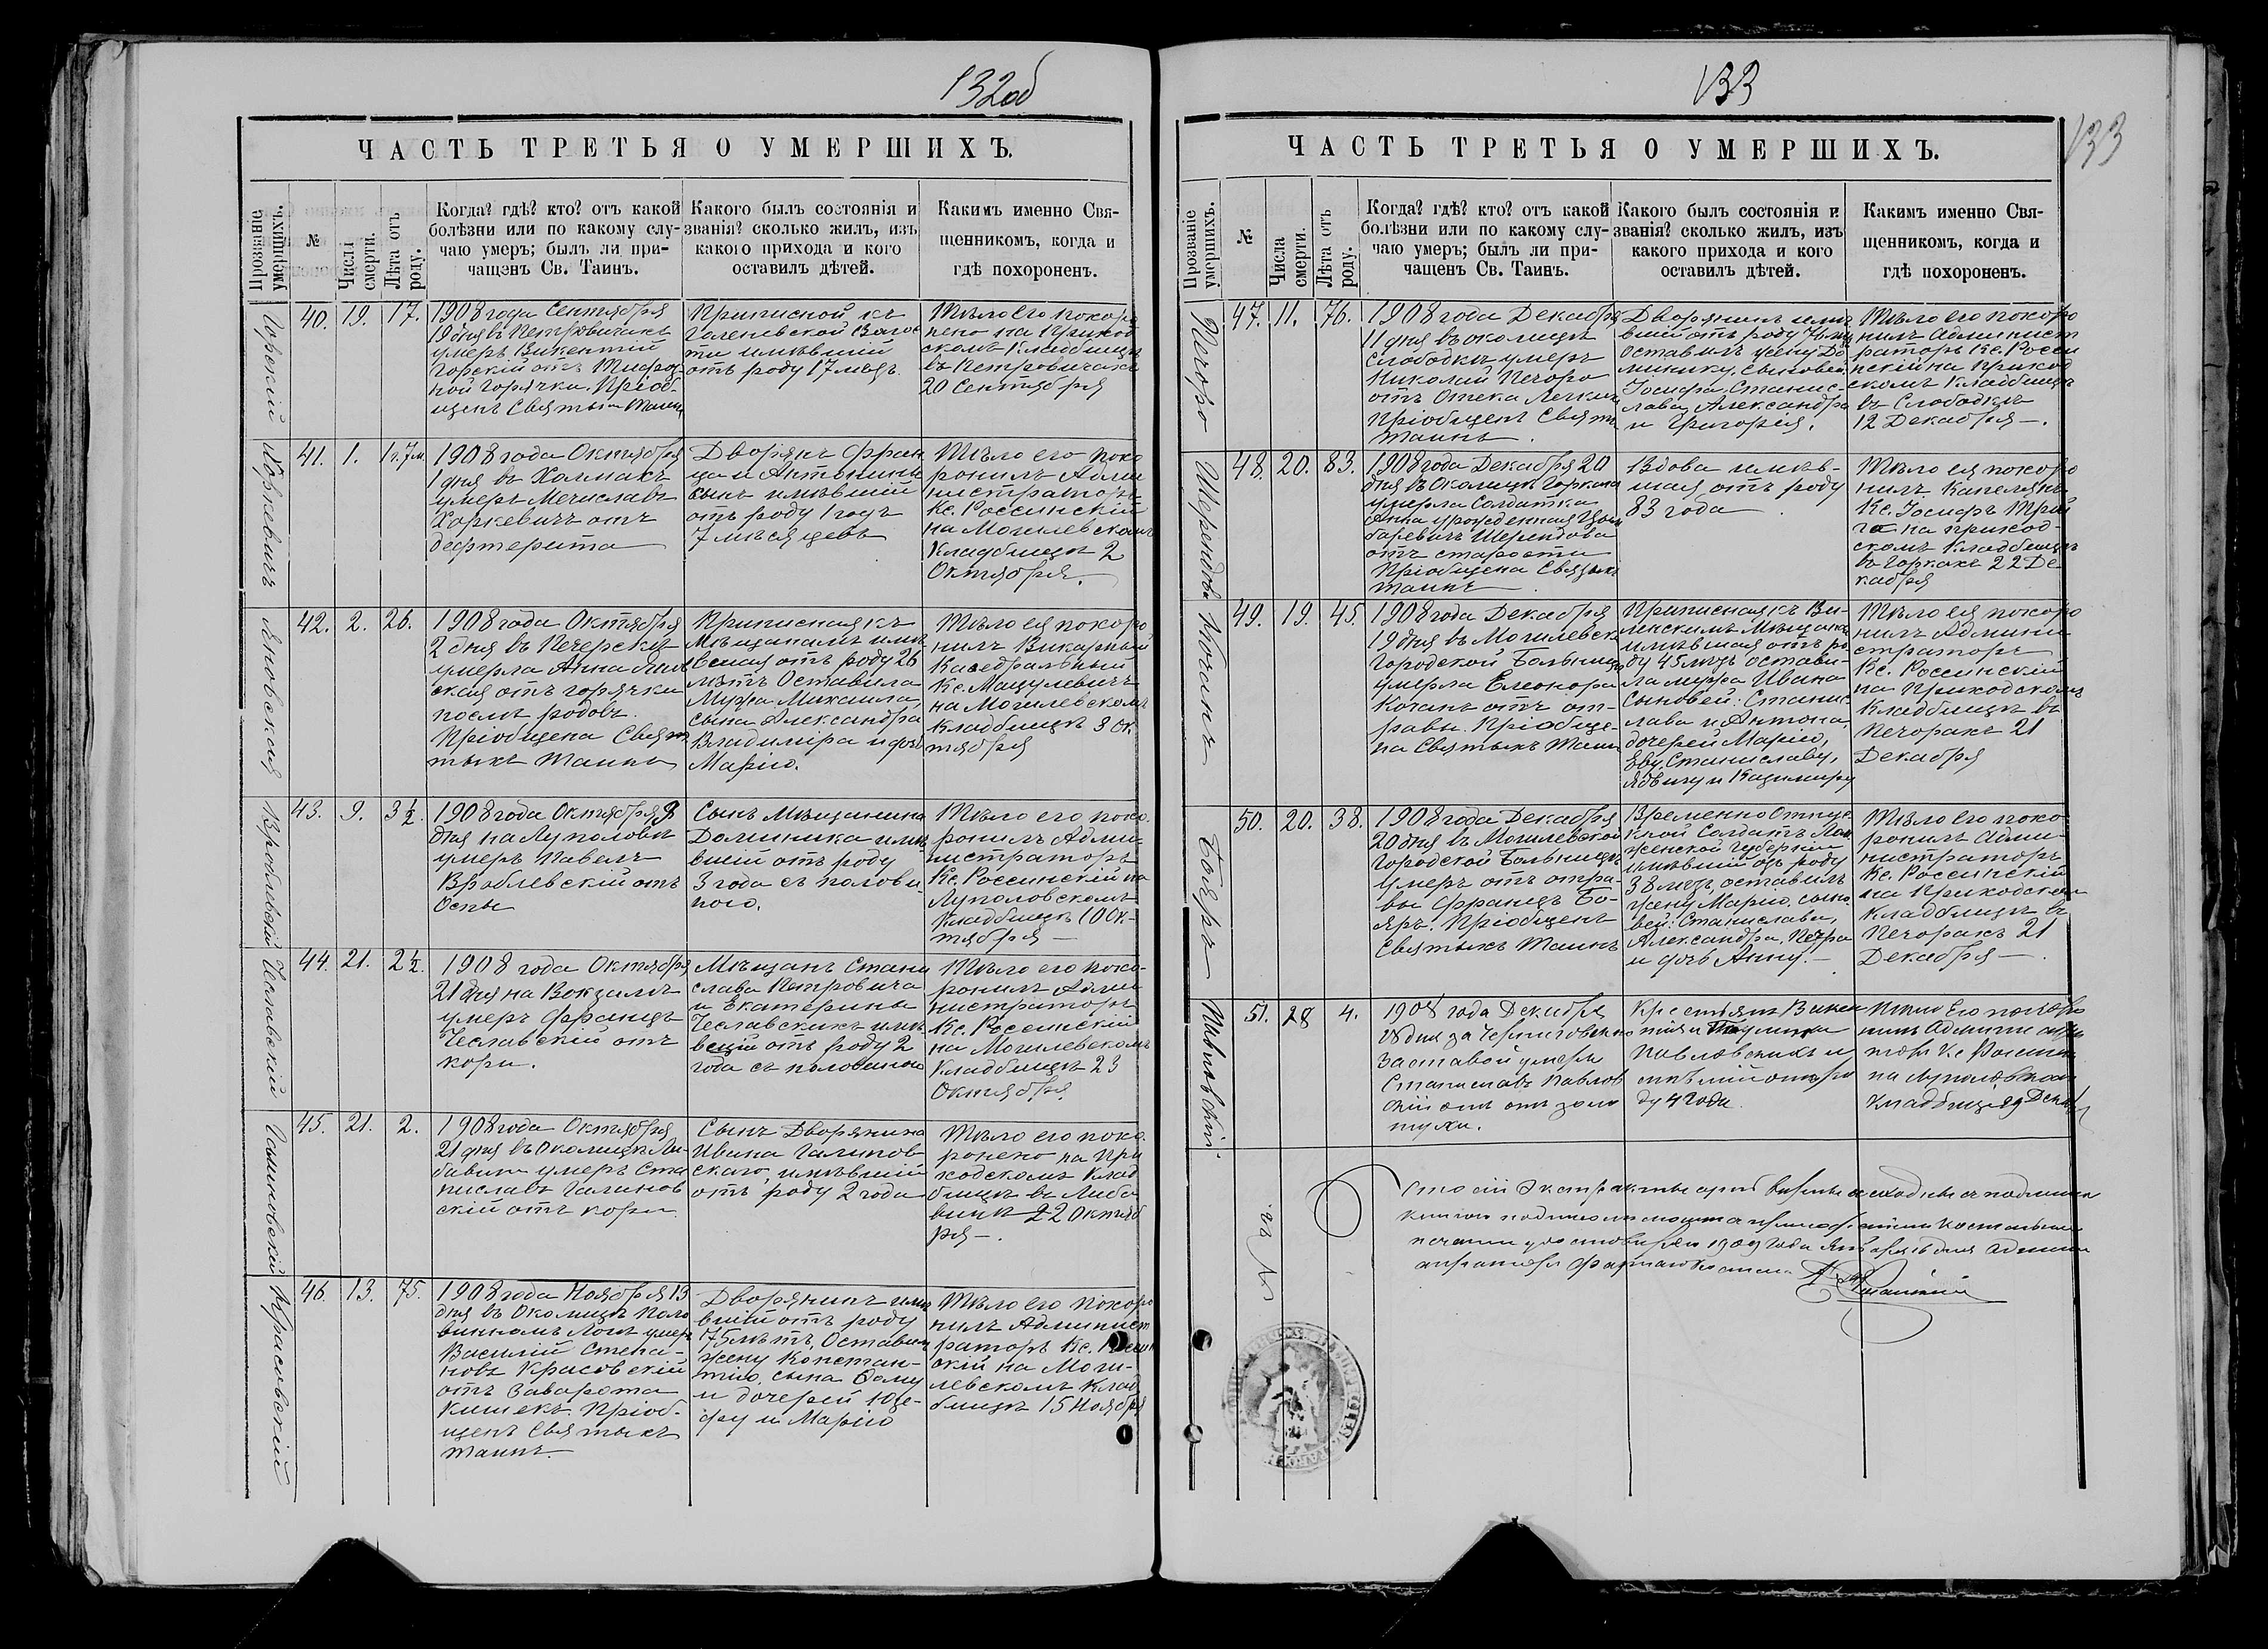 132об
ЧАСТЬ ТРЕТЬЯ О УМЕРШИХЪ.
Прозваніе умершихъ.
№
Числа смерти.
Лѣта отъ роду.
Когда? гдѣ? кто? отъ какой
болѣзни или по какому слу-
чаю умеръ; былъ ли при-
чащенъ Св. Таинъ.
Какого былъ состоянія и
званія? сколько жилъ, изъ
какого прихода и кого
оставилъ дѣтей.
Какимъ именно Свя-
щенникомъ, когда и
гдѣ похороненъ.
Горскій
40. 19. 17.
1908 года Сентября
19 дня въ Петровичахъ
умеръ Викентій
Горскій отъ Тифоз-
ной Горячки. Пріоб
щенъ Святыхъ Таинъ
Приписной къ
ти имѣвшій
отъ роду 17 лѣтъ.
Тѣло его похоро
нено на Приход
скомъ Кладбищѣ
въ Петровичахъ
20 Сентября
Хоркевичъ
41. 1. 1 г. 7 м.
1908 года Октября
1 дня въ Холмахъ
умеръ Мечиславъ
Хоркевичъ отъ
дефтерита
Дворянъ Фран
ца и Антонины
сынъ имѣвшій
отъ роду 1 годъ
7 мѣсяцевъ
Тѣло его похо
ронилъ Адми
нистраторъ
Кс. Россинскій
на Могилевскомъ
Кладбищѣ 2
Октября.
Яновская
42. 2. 26.
1908 года Октября
2 дня въ Печерскѣ
умерла Анна
ская отъ горячки
послѣ родовъ.
Пріобщена Свя
тыхъ Таинъ
Приписная къ
Мѣщанамъ имѣ
вшая отъ роду 26
лѣтъ Оставила
Мужа Михаила,
сына Александра
Владиміра и дочь
Марію.
Тѣло ея похоро
нилъ Викарный
Каѳедральный
Кс. Мацулевичъ
на Могилевскомъ
Кладбищѣ 3 Ок
тября
Вроблевскій
43. 9. 3½.
1908 года Октября 9
дня на Луполовѣ
умеръ Павелъ
Вроблевскій отъ
Оспы
Сынъ Мѣщанина
Доминика имѣ
вшій отъ роду
3 года съ полови
ною.
Тѣло его похо
ронилъ Адми
нистраторъ
Кс. Россинскій на
Луполовскомъ
Кладбищѣ 10 Ок-
тября —
Чеславскій
44. 21. 2½.
1908 года Октября
21 дня на Вокзалѣ
умеръ Францъ
Чеславскій отъ
кори.
Мѣщанъ Стани
слава Петровича
и Екатерины
Чеславскихъ имѣ
вшій отъ роду 2
года съ половиною
Тѣло его похо-
ронилъ Адми
нистраторъ
Кс. Россинскій
на Могилевскомъ
Кладбищѣ 23
Октября.
Галиновскій
45. 21. 2.
1908 года Октября
21 дня въ Околицѣ Лю-
бавинѣ умеръ Ста
ниславъ Галинов
скій отъ кори
Сынъ Дворянина
Ивана Галинов
скаго, имѣвшій
отъ роду 2 года
Тѣло его похо
ронено на При
ходскомъ Клад
бищѣ въ Любо
винѣ 22 Октяб
ря —.
Красовскій
46. 13. 75.
1908 года Ноября 13
дня въ Околицѣ Поло
винномъ Логѣ умеръ
Василій Степа-
новъ Красовскій
отъ Заворота
Кишекъ. Пріоб-
щенъ Святыхъ
Таинъ.
Дворянинъ имѣ
вшій отъ роду
75 лѣтъ, Оставилъ
жену Констан-
тію, сына Фому
и дочерей Юзе-
фу и Марію
Тѣло его похоро
нилъ Админист
раторъ Кс. Росин
скій на Моги-
левскомъ Клад
бищѣ 15 Ноября
133
133
ЧАСТЬ ТРЕТЬЯ О УМЕРШИХЪ.
Прозваніе умершихъ.
№
Числа смерти.
Лѣта отъ роду.
Когда? гдѣ? кто? отъ какой
болѣзни или по какому слу-
чаю умеръ; былъ ли при-
чащенъ Св. Таинъ.
Какого былъ состоянія и
званія? сколько жилъ, изъ
какого прихода и кого
оставилъ дѣтей.
Какимъ именно Свя-
щенникомъ, когда и
гдѣ похороненъ.
Печоро
47. 11. 76.
1908 года Декабря
11 дня въ околицѣ
Слободкѣ умеръ
Николай Печоро
отъ Отека Легкихъ
Пріобщенъ Святыхъ
Таинъ.
Дворянинъ имѣ
вшій отъ роду 76 лѣтъ
Оставилъ жену До
минику, сыновей
Іосифа, Станис-
лава, Александра
и Григорія.
Тѣло его похоро
нилъ Админист
раторъ Кс. Росси
нскій на Приход
скомъ Кладбищѣ
въ Слободкѣ
12 Декабря —.
Шерендова
48. 20. 83.
1908 года Декабря 20
дня въ Околицѣ Горкахъ
умерла Солдатка
Анна урожденная
Шерендова
отъ старости
Пріобщена Святыхъ
Таинъ
Вдова имѣв-
шая отъ роду
83 года
Тѣло ея похоро
нилъ Капелянъ
Кс. Іосифъ
на приход-
скомъ Кладбищѣ
въ Горкахъ 22 Де
кабря
Коганъ
49. 19. 45.
1908 года Декабря
19 дня въ Могилевско
Городской Больницѣ
умерла Елеонора
Коганъ отъ от-
равы. Пріобще-
на Святыхъ Таинъ
Приписная къ Ви-
ленскимъ Мѣщанамъ
имѣвшая отъ ро
ду 45 лѣтъ остави-
ла мужа Ивана
Сыновей: Станис
лава и Антона,
дочерей Марію,
Еву, Станиславу,
Ядвигу и Казимиру
Тѣло ея похоро
нилъ Админи
страторъ
Кс. Россинскій
на Приходскомъ
Кладбищѣ въ
Печорахъ 21
Декабря
Бояръ
50. 20. 38.
1908 года Декабря
20 дня въ Могилевской
Городской Больницѣ
Умеръ отъ отра-
вы Францъ Бо-
яръ. Пріобщенъ
Святыхъ Таинъ
Временно Отпус
кной Солдатъ Лом
женской Губерніи
имѣвшій отъ роду
38 лѣтъ, оставилъ
жену Марію, сыно
вей: Станислава,
Александра, Петра
и дочь Анну. —
Тѣло его похо
ронилъ Адми-
нистраторъ
Кс. Россинскій
на Приходском
Кладбищѣ въ
Печорахъ 21
Декабря —.
Павловскій
51. 28 4.
1908 года Декабря
28 дня за Черниговскою
Заставой умеръ
Станиславъ Павлов
скій отъ золо
тухи.
Крестьянъ Викен
тія и
Павловскихъ и
мѣвшій отъ ро
ду 4 года.
Тѣло Его похоро
нилъ Админист
торъ Кс Росинс
на Луполовском
кладбищѣ 29 Декаб